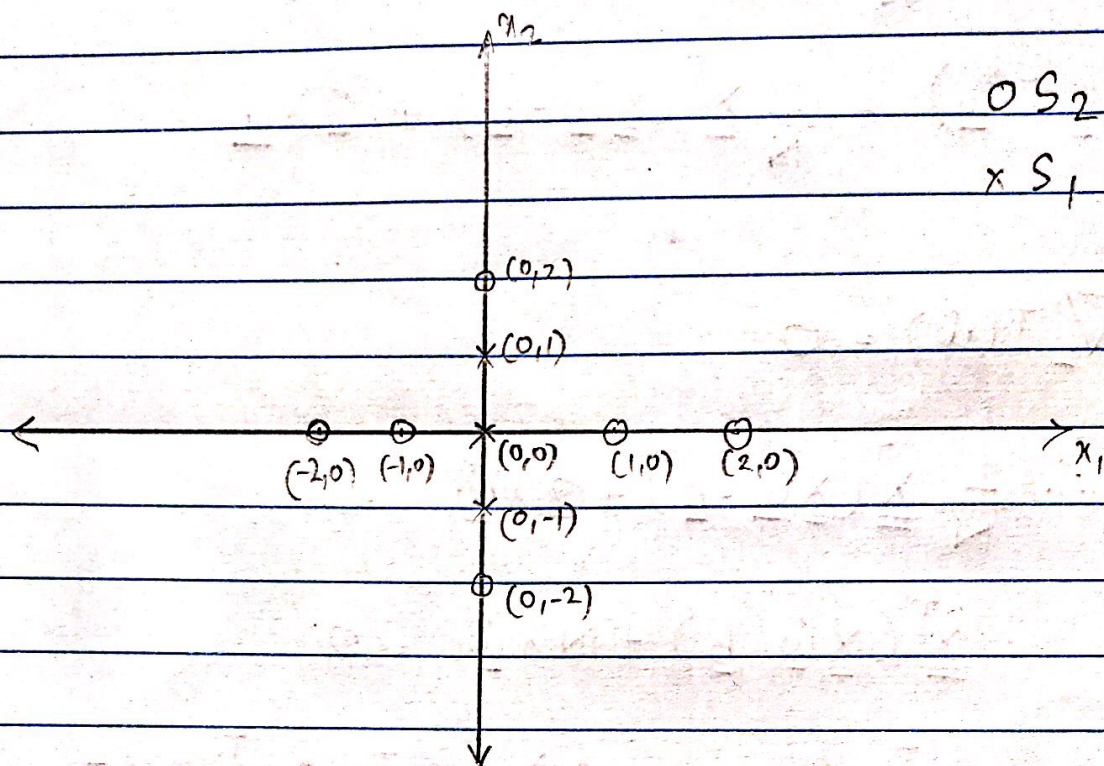 x₂
O S₂
× S₁
(0,2)
(0,1)
(-2,0) (-1,0) (0,0) (1,0) (2,0) x₁
(0,-1)
(0,-2)